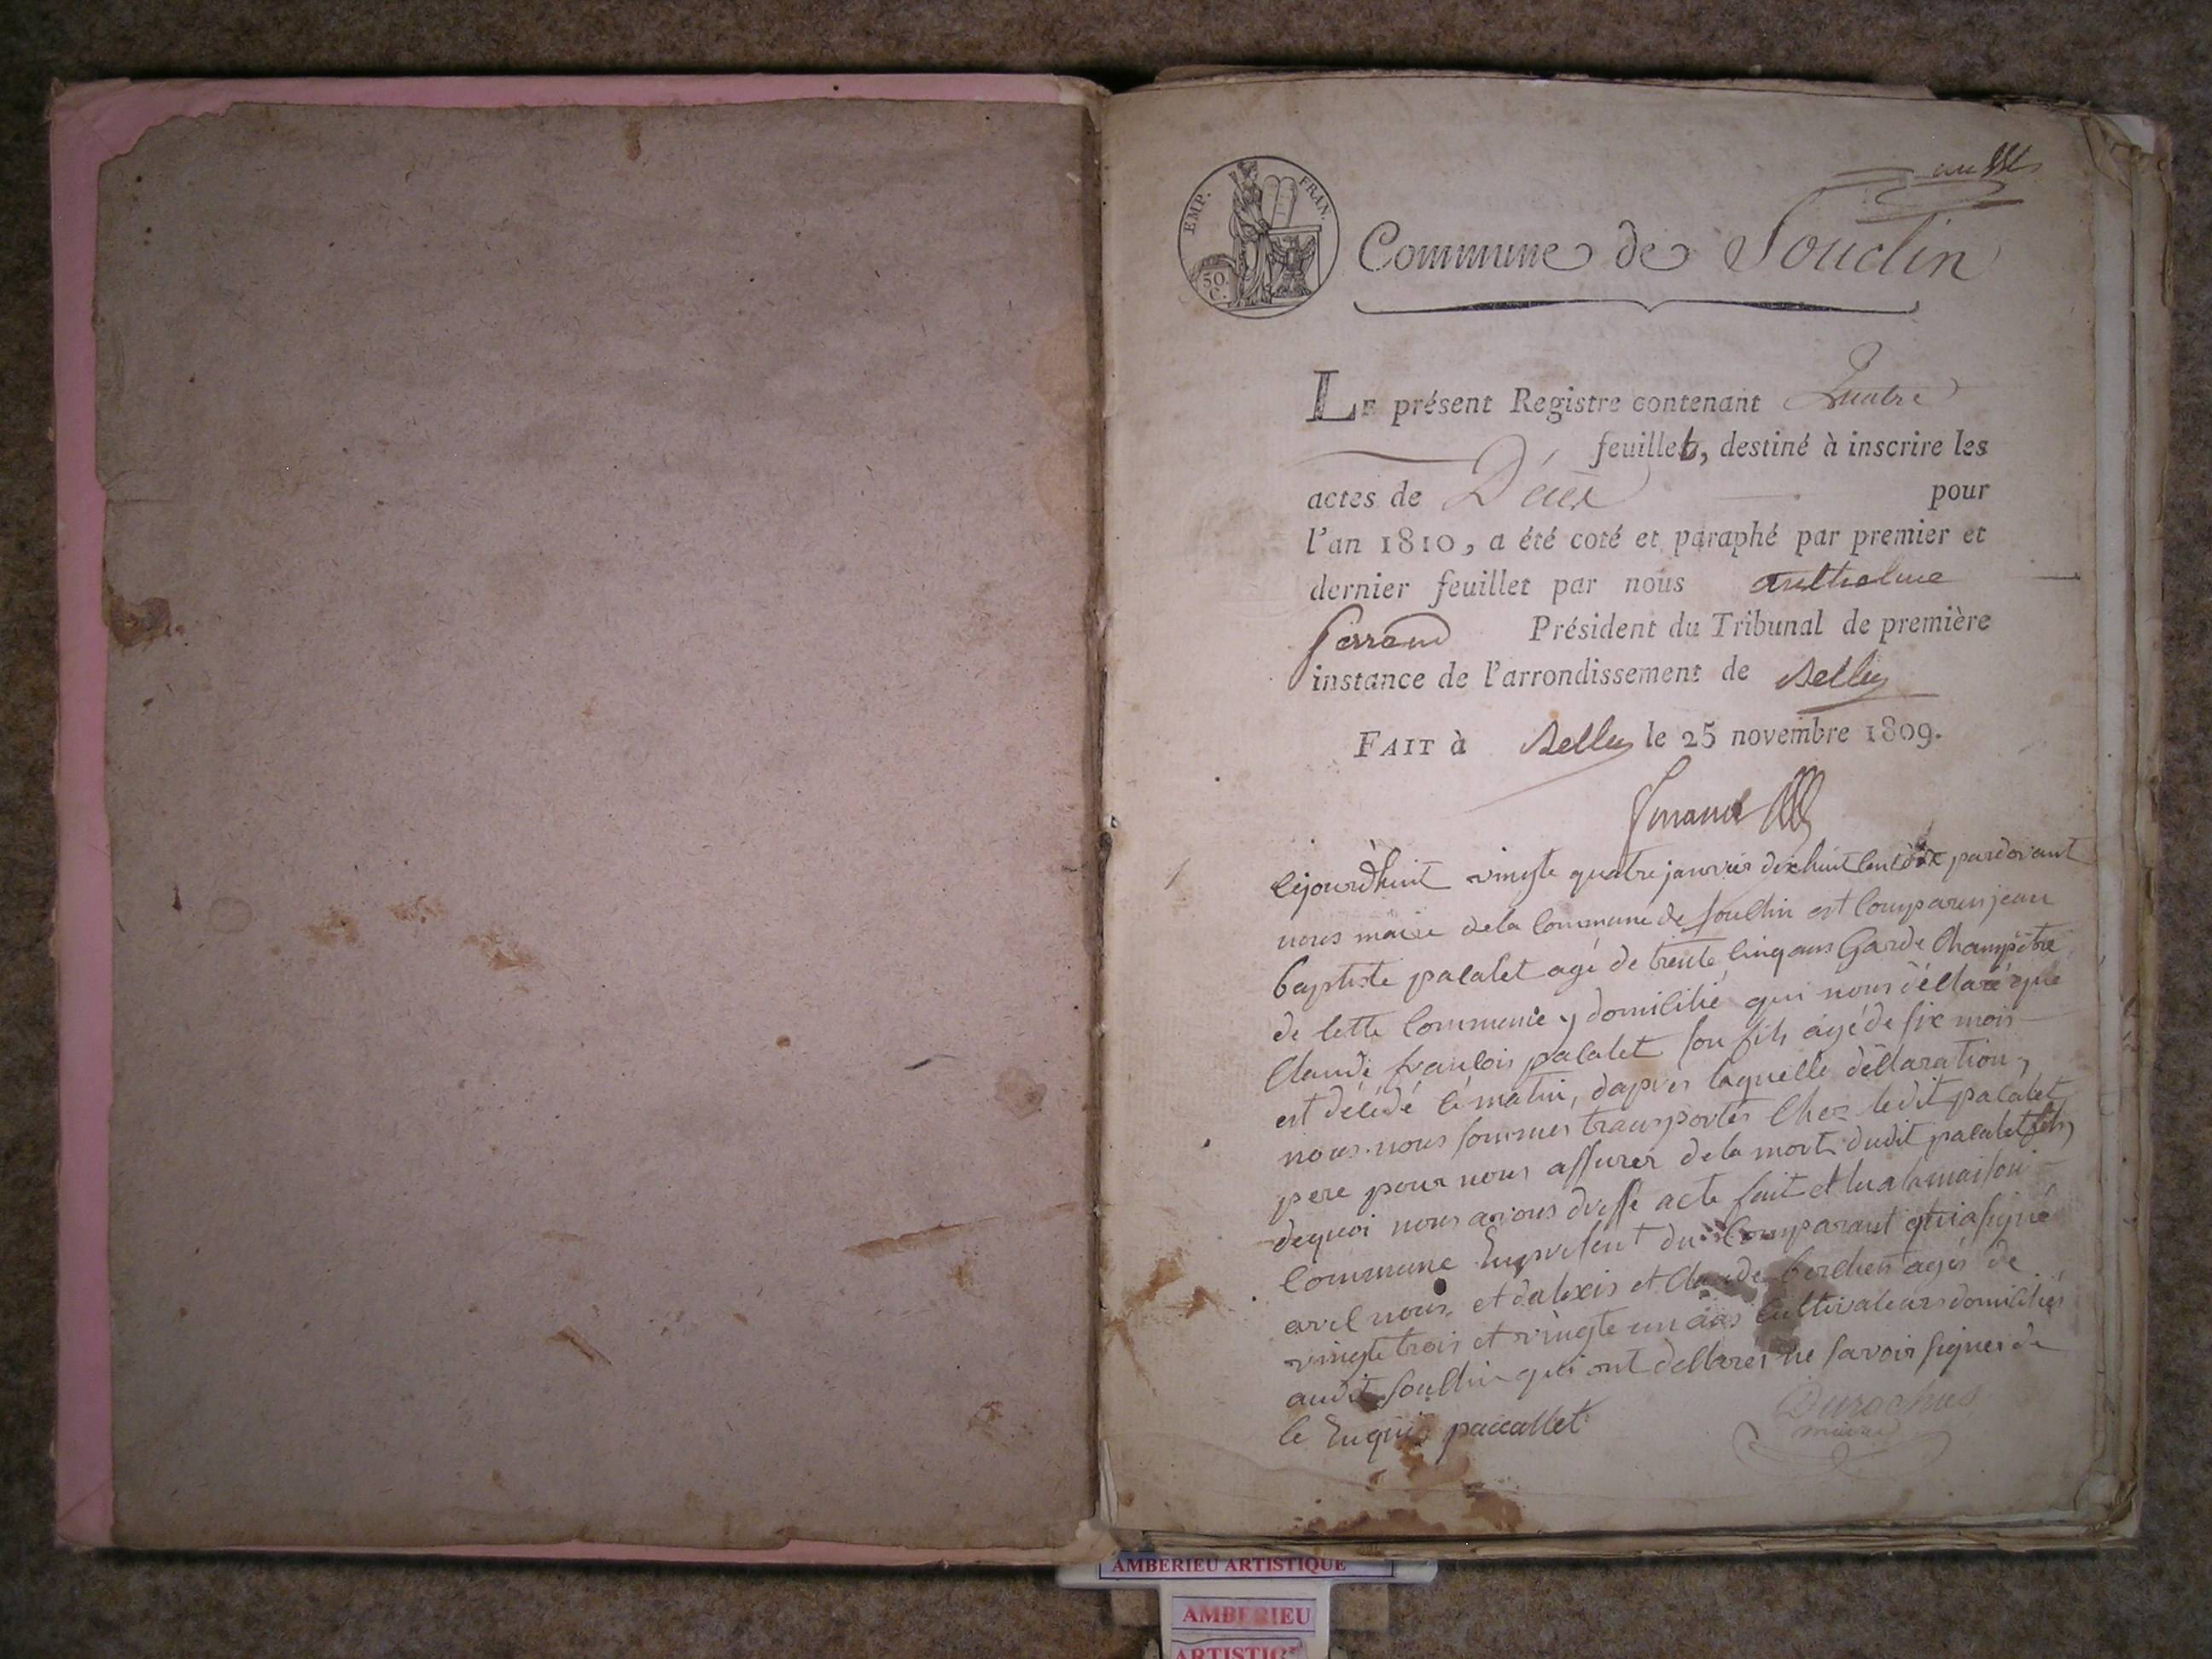 EMP. FRAN.
50 C.
Commune de Souclin
LE présent Registre contenant Quatre
feuillets, destiné à inscrire les
actes de Décès pour
l'an 1810, a été coté et paraphé par premier et
dernier feuillet par nous anthelme
ferrand Président du Tribunal de première
instance de l'arrondissement de Belley
FAIT à Belley le 25 novembre 1809.
ferrand
1
Cejourdhuit vingte quatre janvier dix huit cent dix pardevant
nous maire dela Commune de Souclin est Comparu jean
baptiste pacalet agé de trente Cinq ans Garde Champêtre
de Cette Commune y domicilié qui nous déclaré que
Claude francois pacalet son fils agé de six mois
est décédé cé matin, dapres laquelle déclaration,
nous nous sommes transportés Chez ledit pacalet
pere pour nous assurér dela mort dudit pacalet fils,
dequoi nous avons dressé acte fait et lu a la maison
Commune En présent du Comparant qui a signé
avec nous, et dalexis et Claude ages de
vingte trois et vingte un ans Cultivateurs domiciliés
audit Souclin qui ont declarés ne savoir signer de
ce Enquis paccallet
Durochas
maire
AMBERIEU ARTISTIQUE
AMBERIEU
ARTISTIQUE